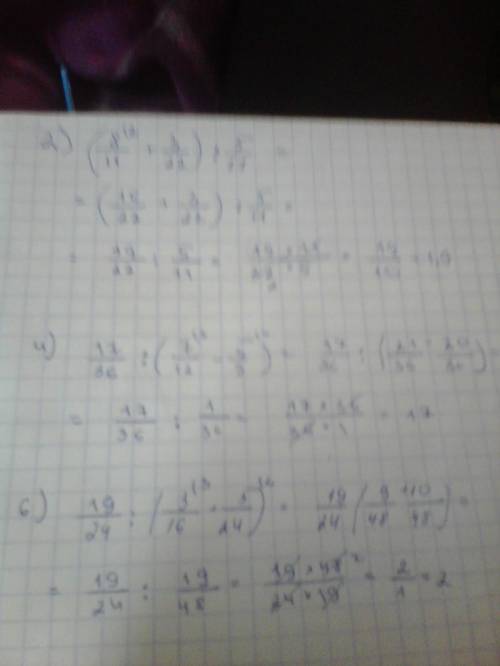 2) (8/11 + 3/22) : 5/11 =
= (16/22 + 3/22) : 5/11 =
= 19/22 : 5/11 = 19 × 11 / 22 · 5 = 19/10 = 1,9
4) 17/36 : (7/12 - 5/9) = 17/36 : (21/36 - 20/36) =
= 17/36 : 1/36 = 17 × 36 / 36 × 1 = 17
6) 19/24 : (3/16 + 5/24) = 19/24 (9/48 + 10/48) =
= 19/24 : 19/48 = 19 × 48 / 24 × 19 = 2/1 = 2